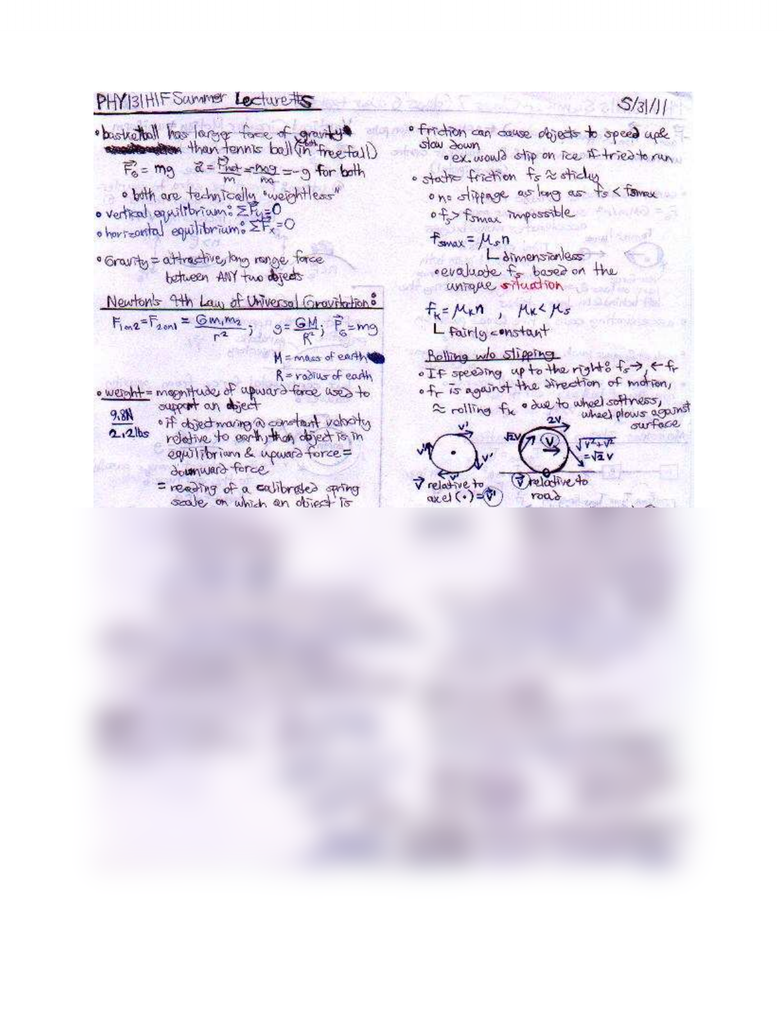 PHY131H1F Summer Lecture #5
5/31/11
• basketball has larger force of gravity
than tennis ball (in freefall)
F_G = mg   a = F_net/m = -mg/m = -g for both
• both are technically "weightless"
• vertical equilibrium: ΣF_y = 0
• horizontal equilibrium: ΣF_x = 0
• Gravity = attractive, long range force
between ANY two objects
Newton's 4th Law of Universal Gravitation:
F_1on2 = F_2on1 = Gm₁m₂/r² ; g = GM/R² ; F_G = mg
M = mass of earth
R = radius of earth
• weight = magnitude of upward force used to
support an object
9.8N
2.2lbs
• if object moving @ constant velocity
relative to earth, then object is in
equilibrium & upward force =
downward force
= reading of a calibrated spring
scale on which an object is
• friction can cause objects to speed up &
slow down
• ex. would slip on ice if tried to run
• static friction f_s ≈ sticky
• no slippage as long as f_s < f_smax
• f_s > f_smax impossible
f_smax = μ_s n
dimensionless
• evaluate f_s based on the
unique situation
f_k = μ_k n , μ_k < μ_s
fairly constant
Rolling w/o slipping
• If speeding up to the right: f_s →, ← f_r
• f_r is against the direction of motion,
≈ rolling f_k • due to wheel softness,
wheel plows against
surface
v' v' v' v'
2v √2v v √v²+v²
= √2 v
v relative to
axel (•) = v'
v relative to
road